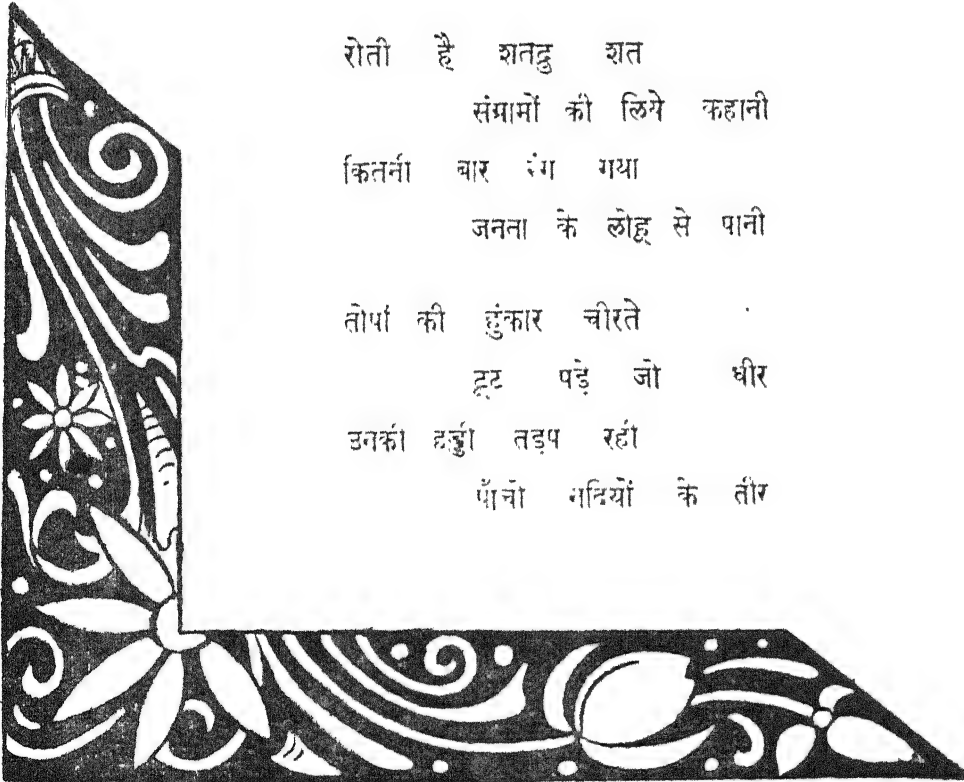 रोती है शतद्रु शत
संग्रामों की लिये कहानी
कितनी बार रंग गया
जनता के लोहू से पानी
तोपों की हुंकार चीरते
टूट पड़े जो धीर
उनकी हड्डी तड़प रही
पाँचो नदियों के तीर